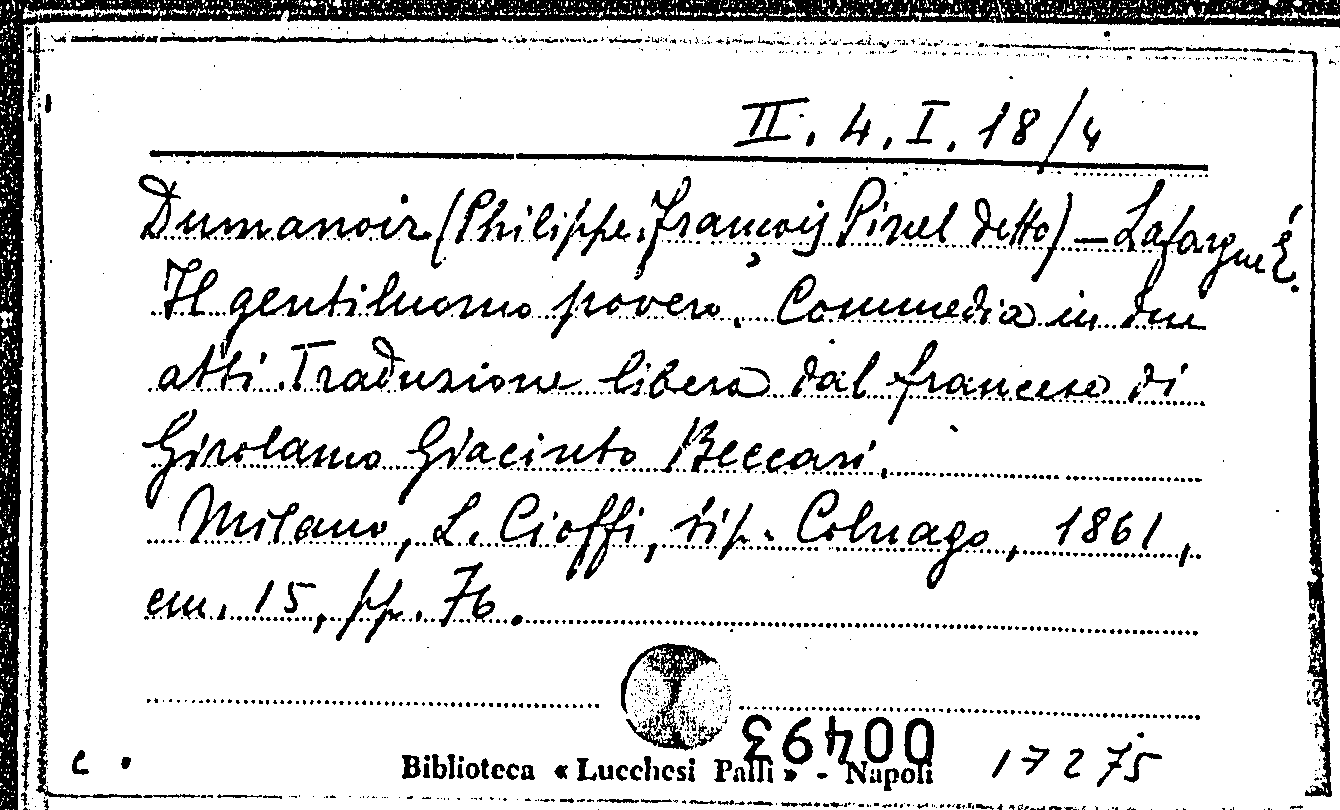 II. 4. I. 18/4
Dumanoir (Philippe. François Pinel detto) – Lafargue É.
Il gentiluomo povero. Commedia in due
atti. Traduzione libera dal francese di
Girolamo Giacinto Beccari.
Milano, L. Cioffi, tip. Colnago, 1861,
cm. 15, pp. 76.
00493
c. Biblioteca « Lucchesi Palli » - Napoli 17275